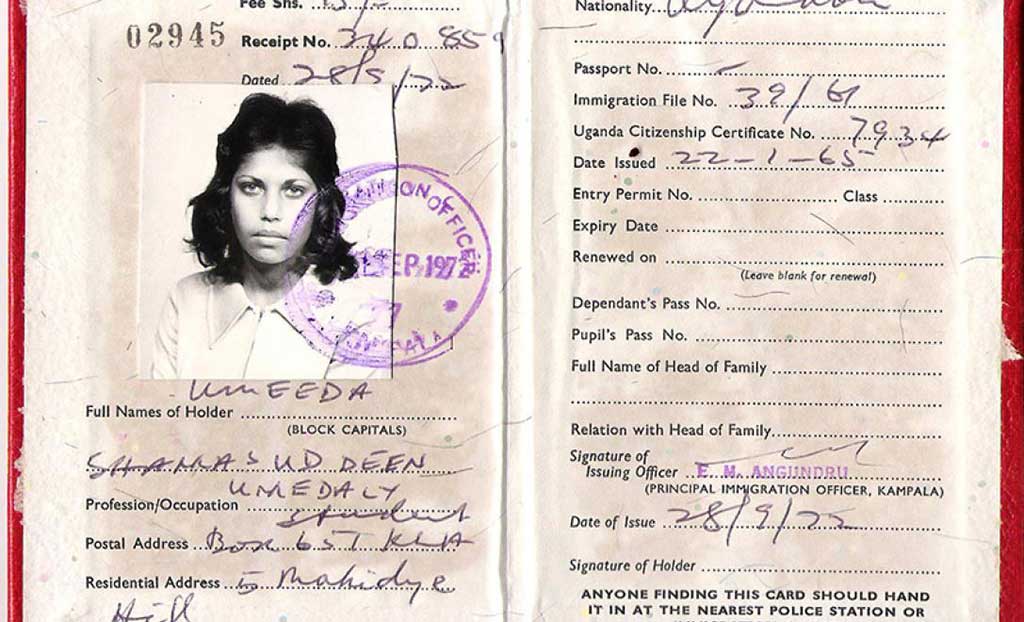 Fee Shs.
02945
Receipt No. 340 859
Dated 28/9/72
IMMIGRATION OFFICER
SEP. 1972
KAMPALA
UMEEDA
Full Names of Holder
(BLOCK CAPITALS)
SHAMASUDDEEN
UMEDALY
Profession/Occupation Student
Postal Address Box 651 KLA
Residential Address 5 Makindye
Hill
Nationality Ugandan
Passport No. —
Immigration File No. 39/61
Uganda Citizenship Certificate No. 7934
Date Issued 22-1-65
Entry Permit No. Class
Expiry Date
Renewed on
(Leave blank for renewal)
Dependant's Pass No.
Pupil's Pass No.
Full Name of Head of Family
Relation with Head of Family
Signature of
Issuing Officer E. M. ANGUNDRU
(PRINCIPAL IMMIGRATION OFFICER, KAMPALA)
Date of Issue 28/9/72
Signature of Holder
ANYONE FINDING THIS CARD SHOULD HAND
IT IN AT THE NEAREST POLICE STATION OR